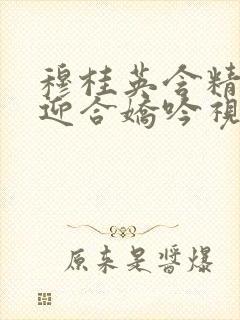 穆桂英含精
迎合嬌吟視
原来是醬爆